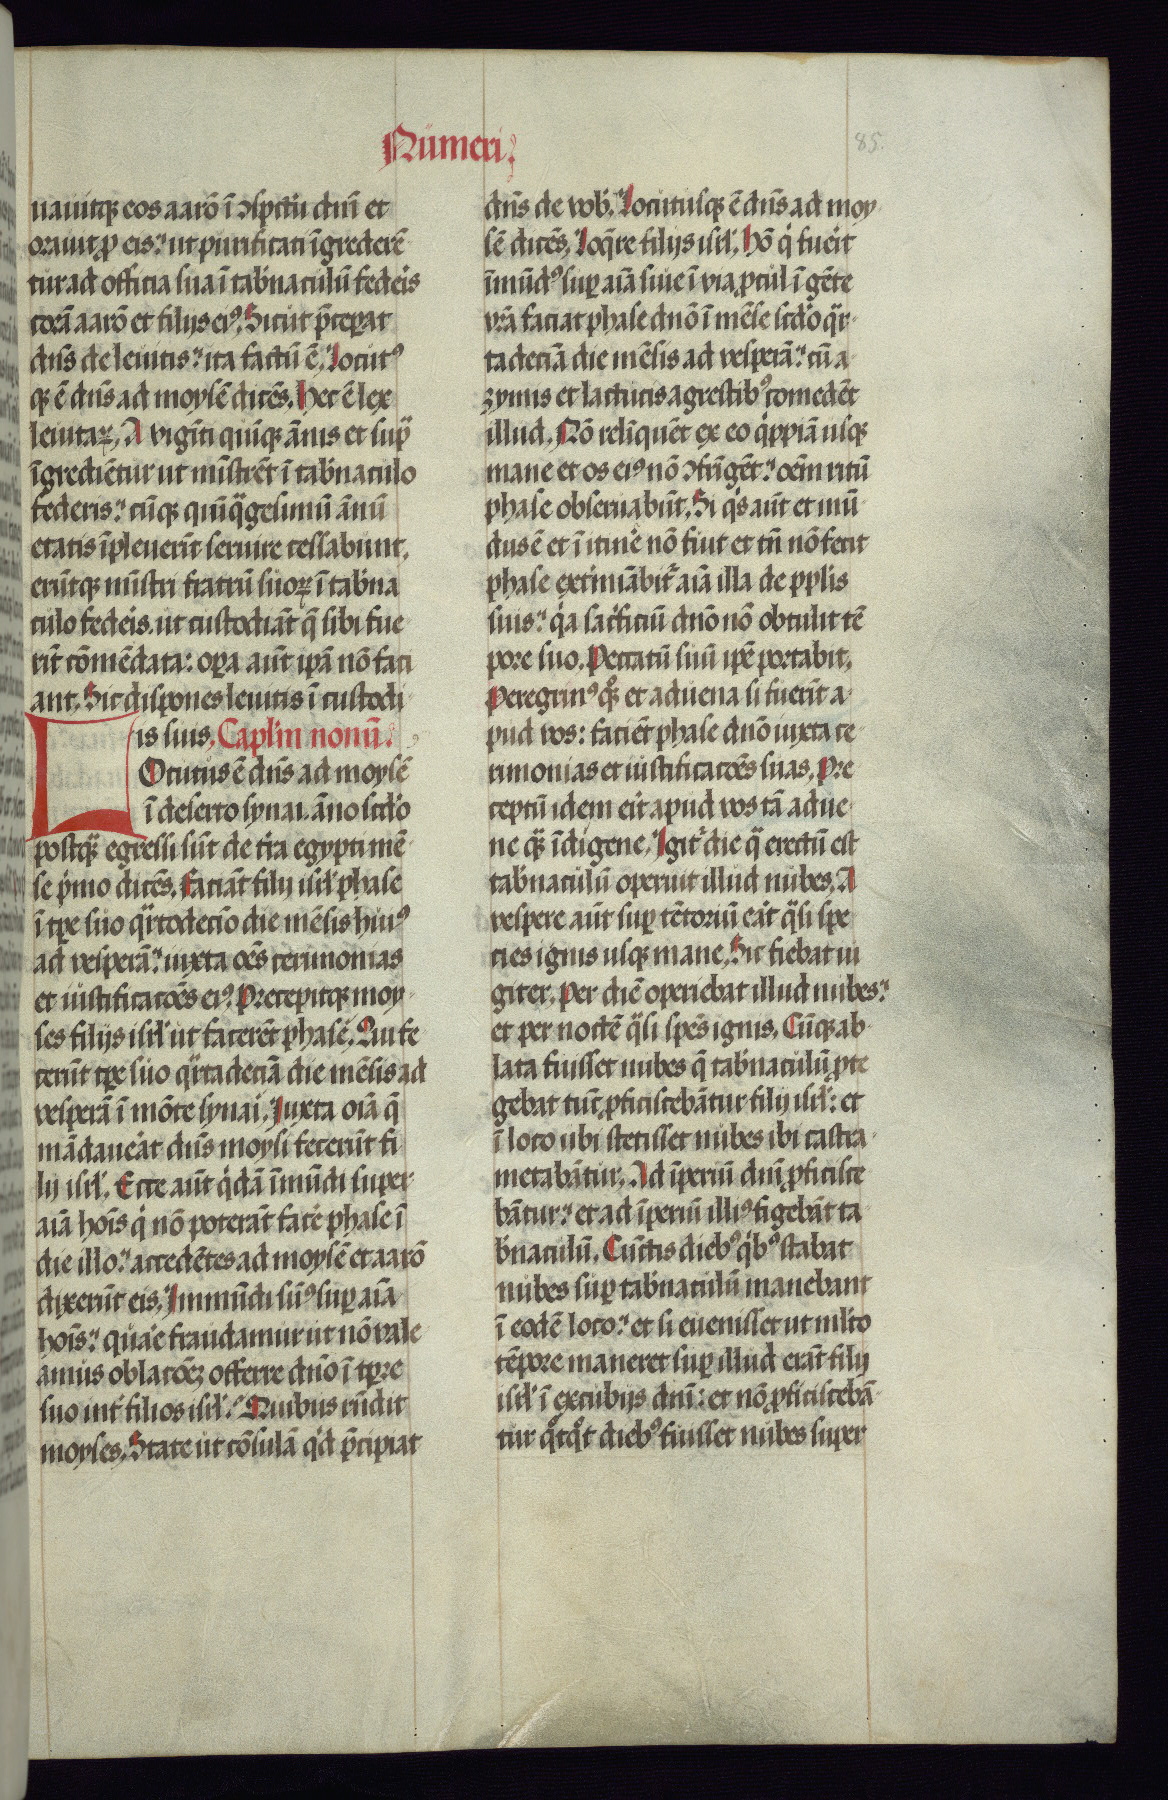 Nūmeri.
85.
uauitq̄ eos aarō ī ↄspc̄tu dn̄i et
orauit ꝓ eis: ut purificati īgrederē
tur ad officia sua ī tab̄naculū fedeīs
corā aarō et filijs eiꝰ. Sicut p̄ceperat
dn̄s de leuitis: ita factū ē. Locutꝰ
q̄ ē dn̄s ad moysē dicēs. Hec ē lex
leuitaꝝ. A vigīti quīq̄ ānis et sup̄
īgrediēntur ut mīstrēt ī tab̄naculo
federis: cūq̄ quīq̄gesimū ānū
etatis īpleuerīt seruire cessabunt.
erūtq̄ mīstri fratrū suoꝝ ī tab̄na
culo fedeīs. ut custodiāt q̄ sibi fue
rīt cōmēdata: oꝑa aūt ip̄a nō faci
ant. Sic dispones leuitis ī custodi
is suis. Capl'm nonū.
LOcutus ē dn̄s ad moysē
ī deserto synai. āno scd̄o
postq̄ egressi sūt de t̄ra egypti mē
se p̄mo dicēs. faciāt filij isrl' phase
ī tp̄e suo q̄rtodecīo die mēsis huiꝰ
ad vesperā: iuxta oēs cerimonias
et iustificatōes eiꝰ. Precepitq̄ moy
ses filijs isrl' ut facerēt phase. Qui fe
cerūt tp̄e suo q̄rtadecīā die mēsis ad
vesperā ī mōte synai. Iuxta oīa q̄
mādauēat dn̄s moysi fecerūt fi
lij isrl'. Ecce aūt q̇dā īmūdi super
aīa hoīs q̇ nō poterāt facē phase ī
die illo: accedētes ad moysē et aarō
dixerūt eis. Immūdi sūꝰ suꝑ aīa
hoīs: quāe fraudamur ut nō vale
amus oblatōeꝫ offerre dn̄o ī tp̄re
suo int̄ filios isrl'. Quibus rn̄dit
moyses. State ut cōsulā q̇d p̄cipiat
dn̄s de vob̄. Locutusq̄ ē dn̄s ad moy
sē dicēs. Loq̄re filijs isrl'. Hō q̇ fuēit
īmūdꝰ suꝑ aīa siue ī via ꝓcul ī gēte
vr̄a faciat phase dn̄o ī mēse scd̄o q̄r
tadecīā die mēsis ad vesperā: cū a
zymis et lactucis agrestibꝰ comedēt
illud. Nō relīquēt ex eo q̇ppiā usq̄
mane et os eiꝰ nō ↄfrīgēt: oēm ritū
phase obseruabūt. Si q̇s aūt et mū
dus ē et ī itinē nō fiut et tn̄ nō fecit
phase extīmiābit̄ aīa illa de pplis
suis: q̇a sac̄ficiū dn̄o nō obtulit tē
pore suo. Peccatū suū ip̄e portabit.
Peregrinꝰ q̊ꝫ et aduena si fuerīt a
pud vos: faciēt phase dn̄o iuxta ce
rimonias et iustificatōes suas. Pre
ceptū idem eīt apud vos tā adue
ne q̄ īdigene. Igit̄ die q̄ erectū est
tab̄naculū operuit illud nubes. A
vespere aūt suꝑ tētoriū eāt q̄si spe
cies ignis usq̄ mane. Sic fiebat iu
giter. Per diē operiebat illud nubes:
et per noctē q̄si spēs ignis. Cūq̄ ab
lata fuisset nubes q̄ tab̄naculū ꝓte
gebat tūc ꝓficiscebātur filij isrl': et
ī loco ubi stetisset nubes ibi castra
metabātur. Ad īperiū dn̄i ꝓficisce
bātur: et ad īperiū illiꝰ figebāt ta
b̄naculū. Cūctis diebꝰ q̇bꝰ stabat
nubes suꝑ tab̄naculū manebant
ī eodē loco: et si euenisset ut ml̄to
tēpore maneret suꝑ illud erāt filij
isrl' ī excubijs dn̄i: et nō ꝓficiscebā
tur q̊tq̊t diebꝰ fuisset nubes super